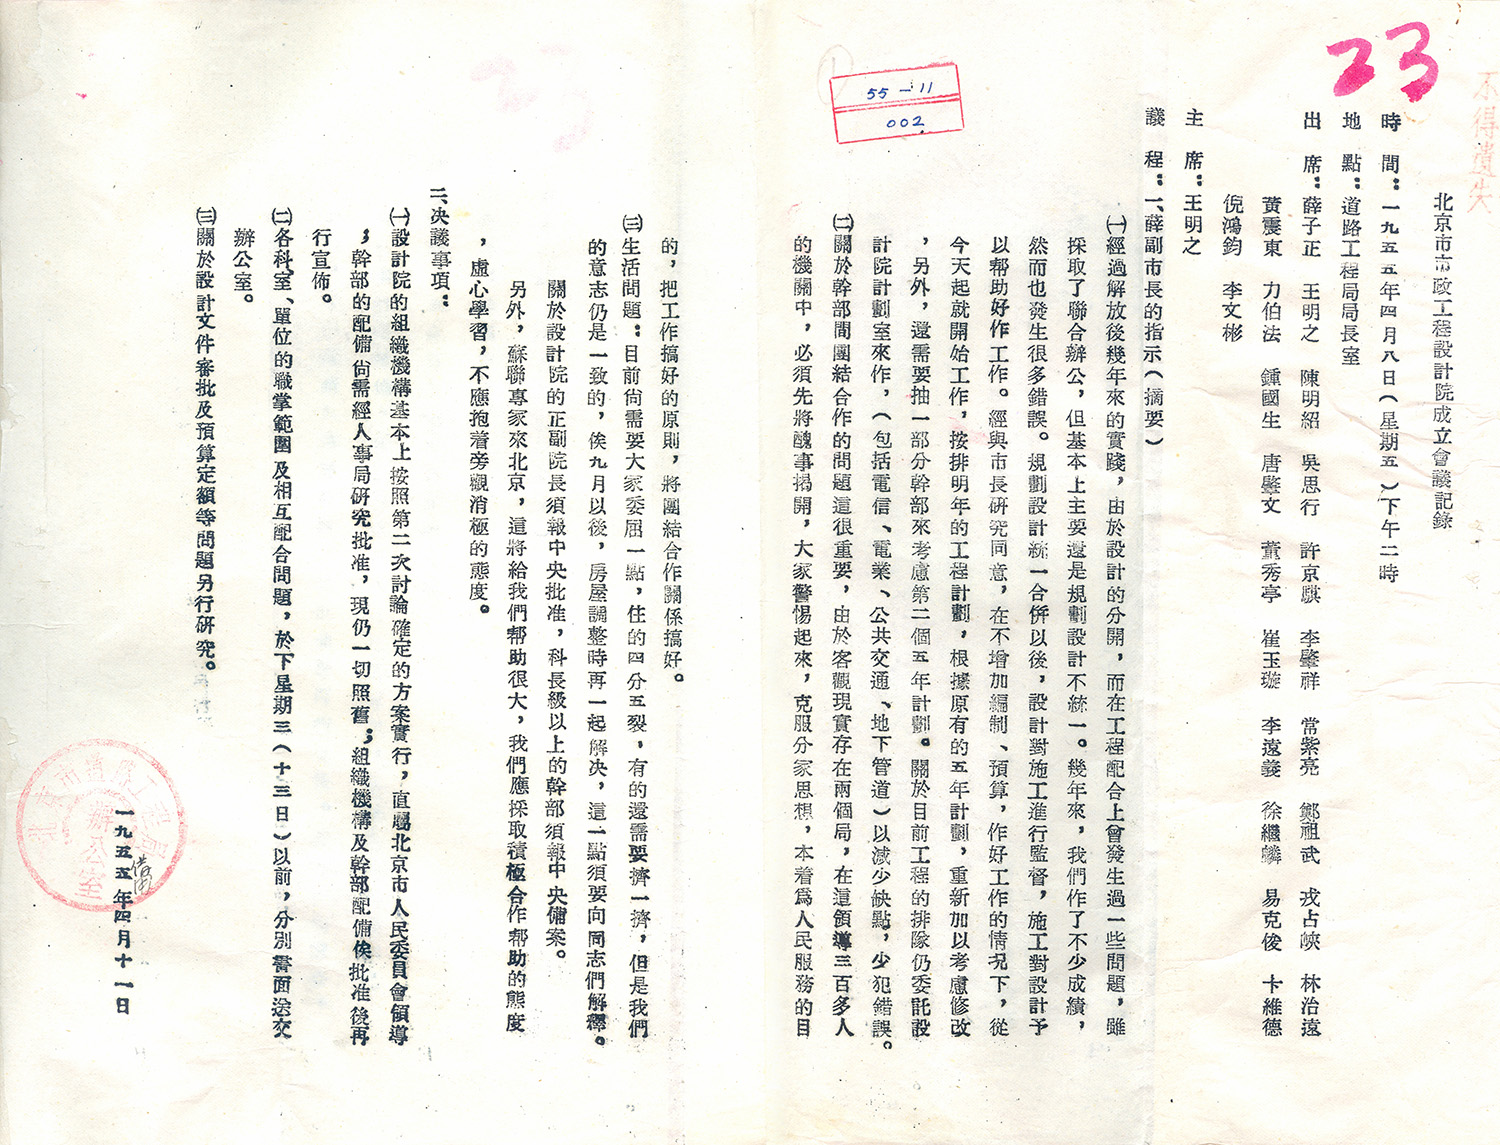 23
不得遺失
55-11
002
北京市市政工程設計院成立會議記錄
時間：一九五五年四月八日（星期五）下午二時
地點：道路工程局局長室
出席：薛子正 王明之 陳明紹 吳思行 許京騏 李肇祥 常紫亮 鄭祖武 戎占峽 林治遠
黃震東 力伯法 鍾國生 唐肇文 董秀亭 崔玉璇 李遠義 徐繼麟 易克俊 卡維德
倪鴻鈞 李文彬
主席：王明之
議程：一、薛副市長的指示（摘要）
㈠經過解放後幾年來的實踐，由於設計的分開，而在工程配合上會發生過一些問題，雖
採取了聯合辦公，但基本上主要還是規劃設計不統一。幾年來，我們作了不少成績，
然而也發生很多錯誤。規劃設計統一合併以後，設計對施工進行監督，施工對設計予
以帮助好作工作。經與市長研究同意，在不增加編制、預算，作好工作的情况下，從
今天起就開始工作，按排明年的工程計劃，根據原有的五年計劃，重新加以考慮修改
，另外，還需要抽一部分幹部來考慮第二個五年計劃。關於目前工程的排隊仍委託設
計院計劃室來作，（包括電信、電業、公共交通、地下管道）以減少缺點，少犯錯誤。
㈡關於幹部間團結合作的問題這很重要，由於客觀現實存在兩個局，在這領導三百多人
的機關中，必須先將醜事揭開，大家警惕起來，克服分家思想，本着爲人民服務的目
的，把工作搞好的原則，將團結合作關係搞好。
㈢生活問題：目前尙需要大家委屈一點，住的四分五裂，有的還需要擠一擠，但是我們
的意志仍是一致的，俟九月以後，房屋調整時再一起解决，這一點須要向同志們解釋。
關於設計院的正副院長須報中央批准，科長級以上的幹部須報中央備案。
另外，蘇聯專家來北京，這將給我們帮助很大，我們應採取積極合作帮助的態度
，虛心學習，不應抱着旁觀消極的態度。
二、决議事項：
㈠設計院的組織機構基本上按照第二次討論確定的方案實行，直屬北京市人民委員會領導
；幹部的配備尙需經人事局研究批准，現仍一切照舊；組織機構及幹部配備俟批准後再
行宣佈。
㈡各科室、單位的職掌範圍及相互配合問題，於下星期三（十三日）以前，分別書面送交
辦公室。
㈢關於設計文件審批及預算定額等問題另行研究。
一九五五年四月十一日
北京市道路工程局
辦公室